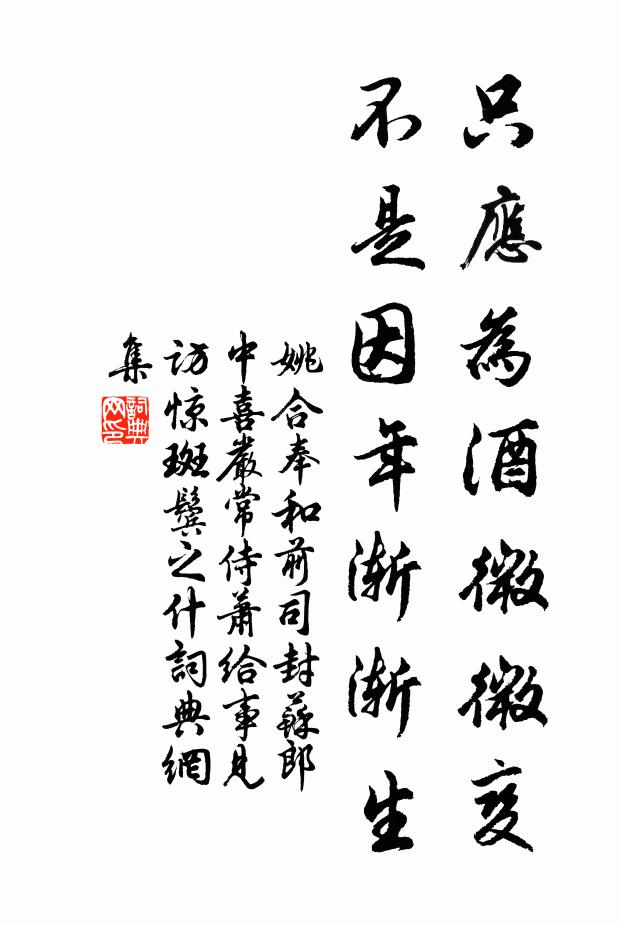 只應為酒微微變
不是因年漸漸生
姚合奉和前司封蘇郎
中喜嚴常侍蕭給事見
訪惊斑鬢之什詞典網
集
詞典
网印